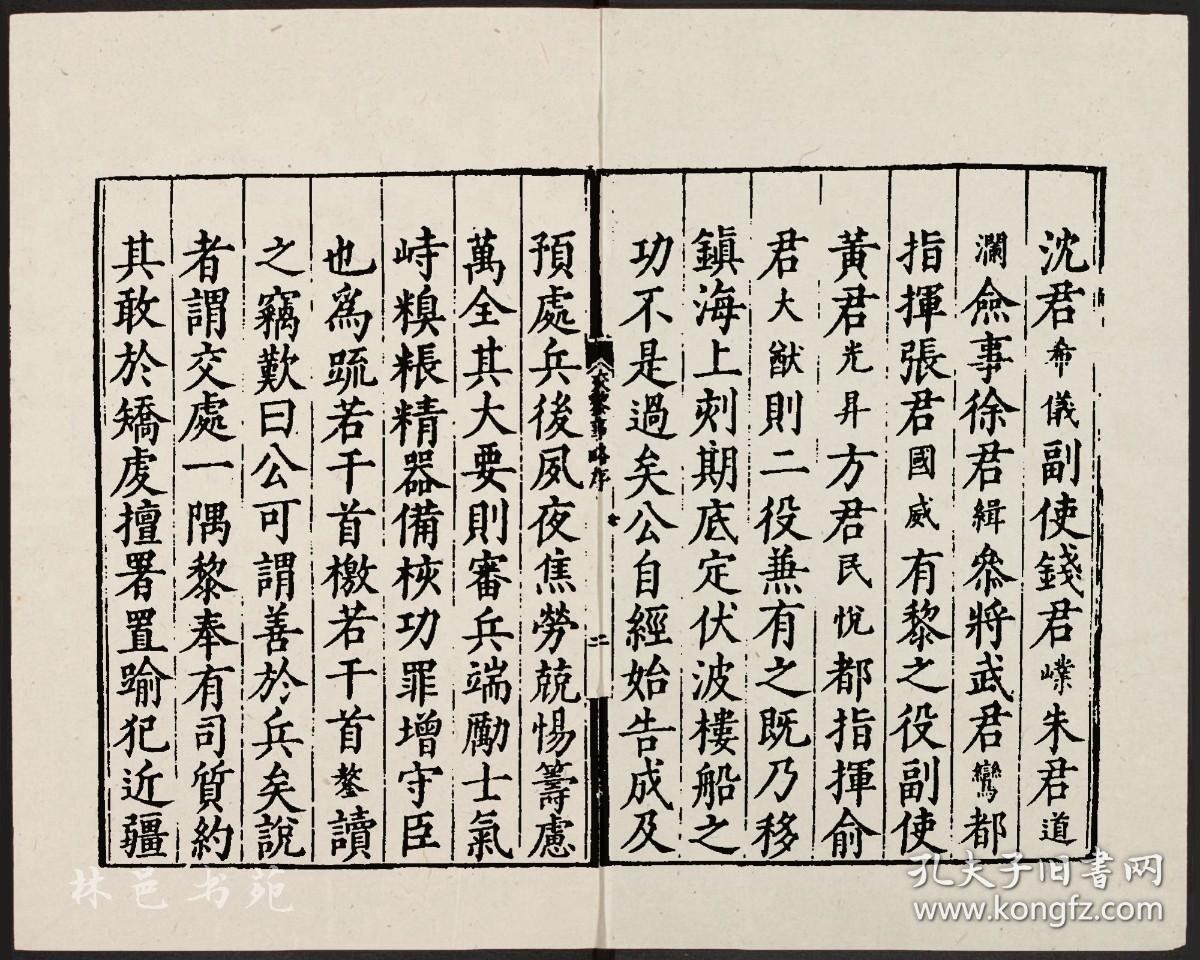 沈君希儀副使錢君嶫朱君道
瀾僉事徐君緝叅將武君鸞都
指揮張君國威有黎之役副使
黃君光昇方君民悅都指揮俞
君大猷則二役兼有之既乃移
鎮海上刻期底定伏波樓船之
功不是過矣公自經始告成及
交黎事略序
二
預處兵後夙夜焦勞兢惕籌慮
萬全其大要則審兵端勵士氣
峙糗粻精器備核功罪增守臣
也爲䟽若干首檄若干首鏊讀
之竊歎曰公可謂善於兵矣說
者謂交處一隅黎奉有司質約
其敢於矯虔擅署置踰犯近疆
林邑书苑
孔夫子旧书网
www.kongfz.com